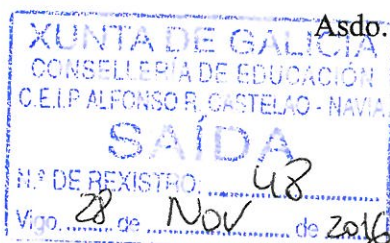 Asdo.
XUNTA DE GALICIA
CONSELLERÍA DE EDUCACIÓN
C.E.I.P ALFONSO R. CASTELAO - NAVIA
SAÍDA
N.º DE REXISTRO: 48
Vigo, 28 de Nov de 2016